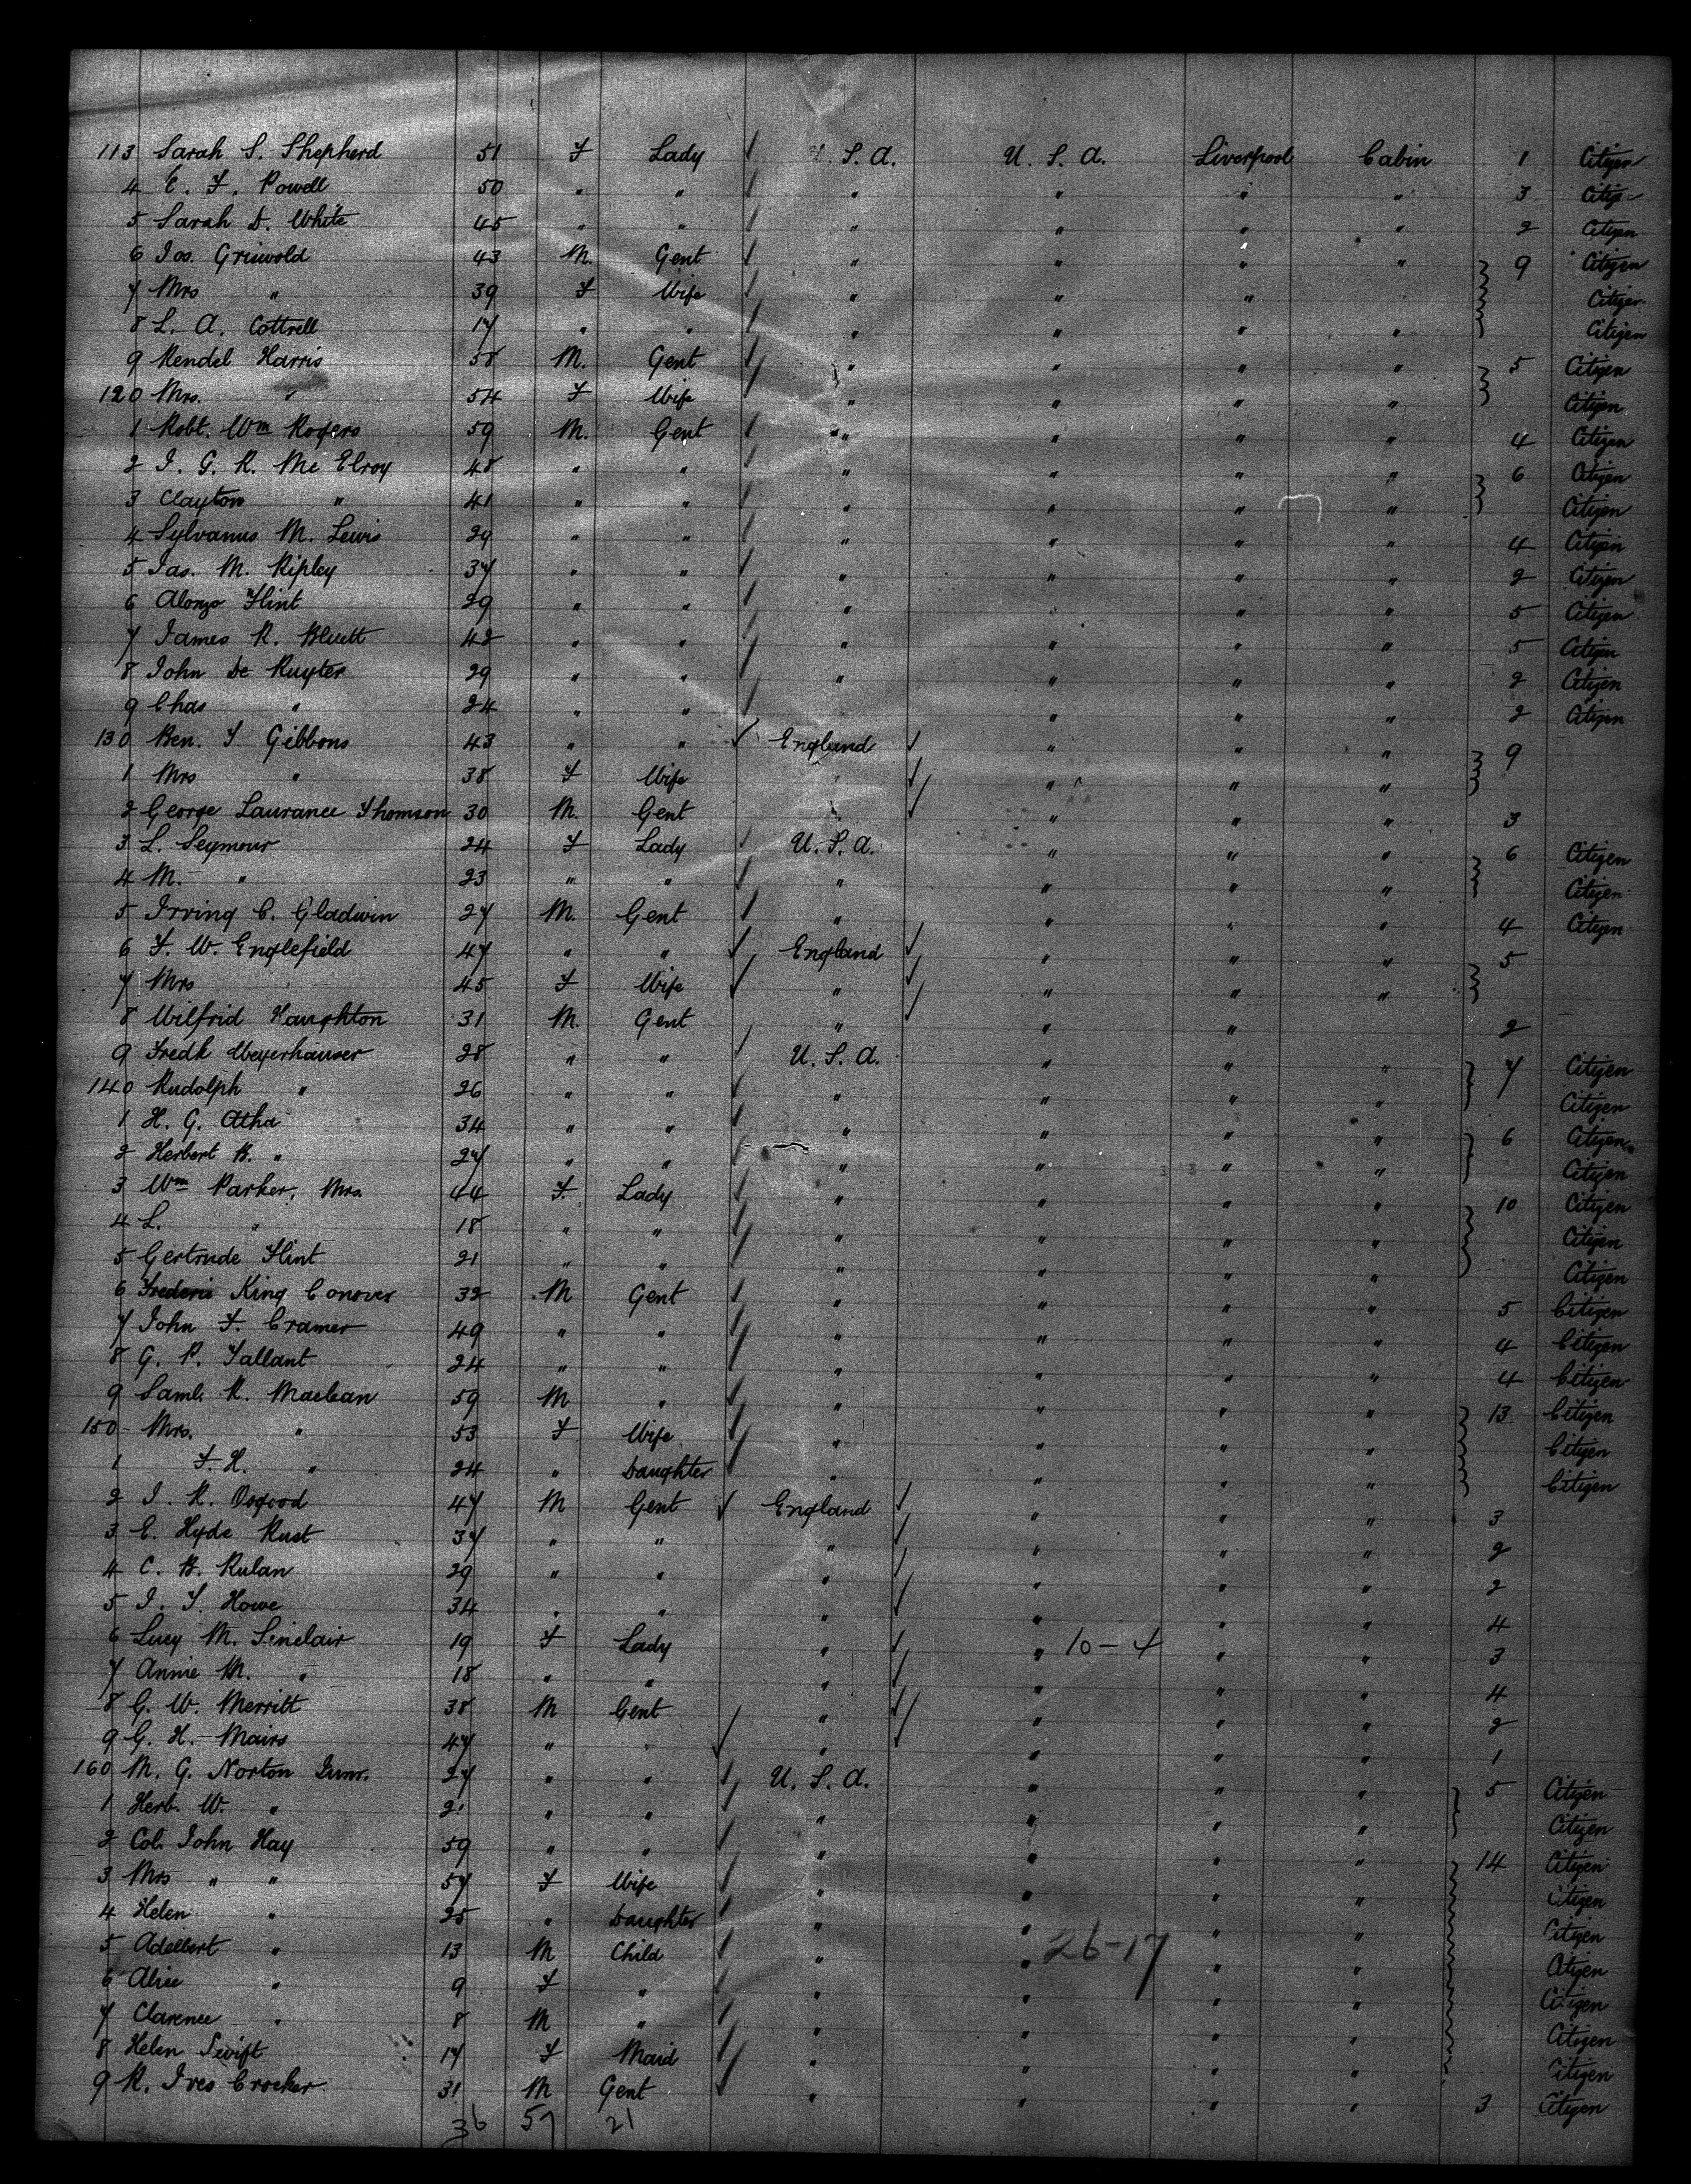 113 Sarah S. Shepherd 51 F Lady U. S. A. U. S. A. Liverpool Cabin 1 Citizen
4 E. F. Powell 50 " " " " " " 3 Citizen
5 Sarah D. White 45 " " " " " " 2 Citizen
6 Jos. Griswold 43 M. Gent " " " " 9 Citizen
7 Mrs " 39 F Wife " " " Citizen
8 L. A. Cottrell 17 " " " " " " Citizen
9 Rendel Harris 58 M. Gent " " " " 5 Citizen
120 Mrs. " 54 F Wife " " " " Citizen
1 Robt. Wm Rogers 59 M. Gent " " " " 4 Citizen
2 J. G. R. Mc Elroy 48 " " " " " " 6 Citizen
3 Clayton " 41 " " " " " " Citizen
4 Sylvanus M. Lewis 29 " " " " " " 4 Citizen
5 Jas. M. Ripley 37 " " " " " " 2 Citizen
6 Alonzo Flint 29 " " " " " " 5 Citizen
7 James R. Bluett 42 " " " " " " 5 Citizen
8 John De Ruyter 29 " " " " " " 2 Citizen
9 Chas " 24 " " " " " " 2 Citizen
130 Ben. T. Gibbons 43 " " England " " " 9
1 Mrs " 38 F Wife " " " "
2 George Laurance Thomson 30 M. Gent " " " 3
3 L. Seymour 24 F Lady U. S. A. " " " 6 Citizen
4 M. " 23 " " " " " " Citizen
5 Irving C. Gladwin 27 M. Gent " " " " 4 Citizen
6 F. W. Englefield 47 " " England " " " 5
7 Mrs 45 F Wife " " " "
8 Wilfrid Haughton 31 M. Gent " " " 2
9 Fredk Weyerhauser 28 " " U. S. A. " " " 7 Citizen
140 Rudolph " 26 " " " " " " Citizen
1 H. G. Atha 34 " " " " " " 6 Citizen
2 Herbert B. " 27 " " " " " " Citizen
3 Wm Parker, Mrs. 44 F. Lady " " " " 10 Citizen
4 L. " 18 " " " " " " Citizen
5 Gertrude Flint 21 " " " " " " Citizen
6 Frederic King Conover 32 M Gent " " " " 5 Citizen
7 John F. Cramer 49 " " " " " " 4 Citizen
8 G. P. Tallant 24 " " " " " " 4 Citizen
9 Saml. R. Maclean 59 M " " " " " 13 Citizen
150 Mrs. " 53 F Wife " " " " Citizen
1 F. H. " 24 " Daughter " " " " Citizen
2 J. R. Osgood 47 M Gent England " " " 3
3 E. Hyde Rust 37 " " " " " " 2
4 C. B. Rulan 29 " " " " " " 2
5 J. T. Howe 34 " " " " " " 4
6 Lucy M. Sinclair 19 F Lady " " 10-4 " " 3
7 Annie M. " 18 " " " " " " 4
8 G. W. Merritt 38 M Gent " " " " 2
9 G. H. Mairs 47 " " " " " " 1
160 M. G. Norton Junr. 27 " " U. S. A. " " " 5 Citizen
1 Herb. W. " 21 " " " " " " Citizen
2 Col. John Hay 59 " " " " " " 14 Citizen
3 Mrs " " 57 F Wife " " " " Citizen
4 Helen " 25 " Daughter " " " " Citizen
5 Adelbert " 13 M Child " " 26-17 " " Citizen
6 Alice " 9 F " " " " " Citizen
7 Clarence " 8 M " " " " " Citizen
8 Helen Swift 17 F Maid " " " " Citizen
9 R. Ives Crocker 31 M Gent " " " " 3 Citizen
36 57 21